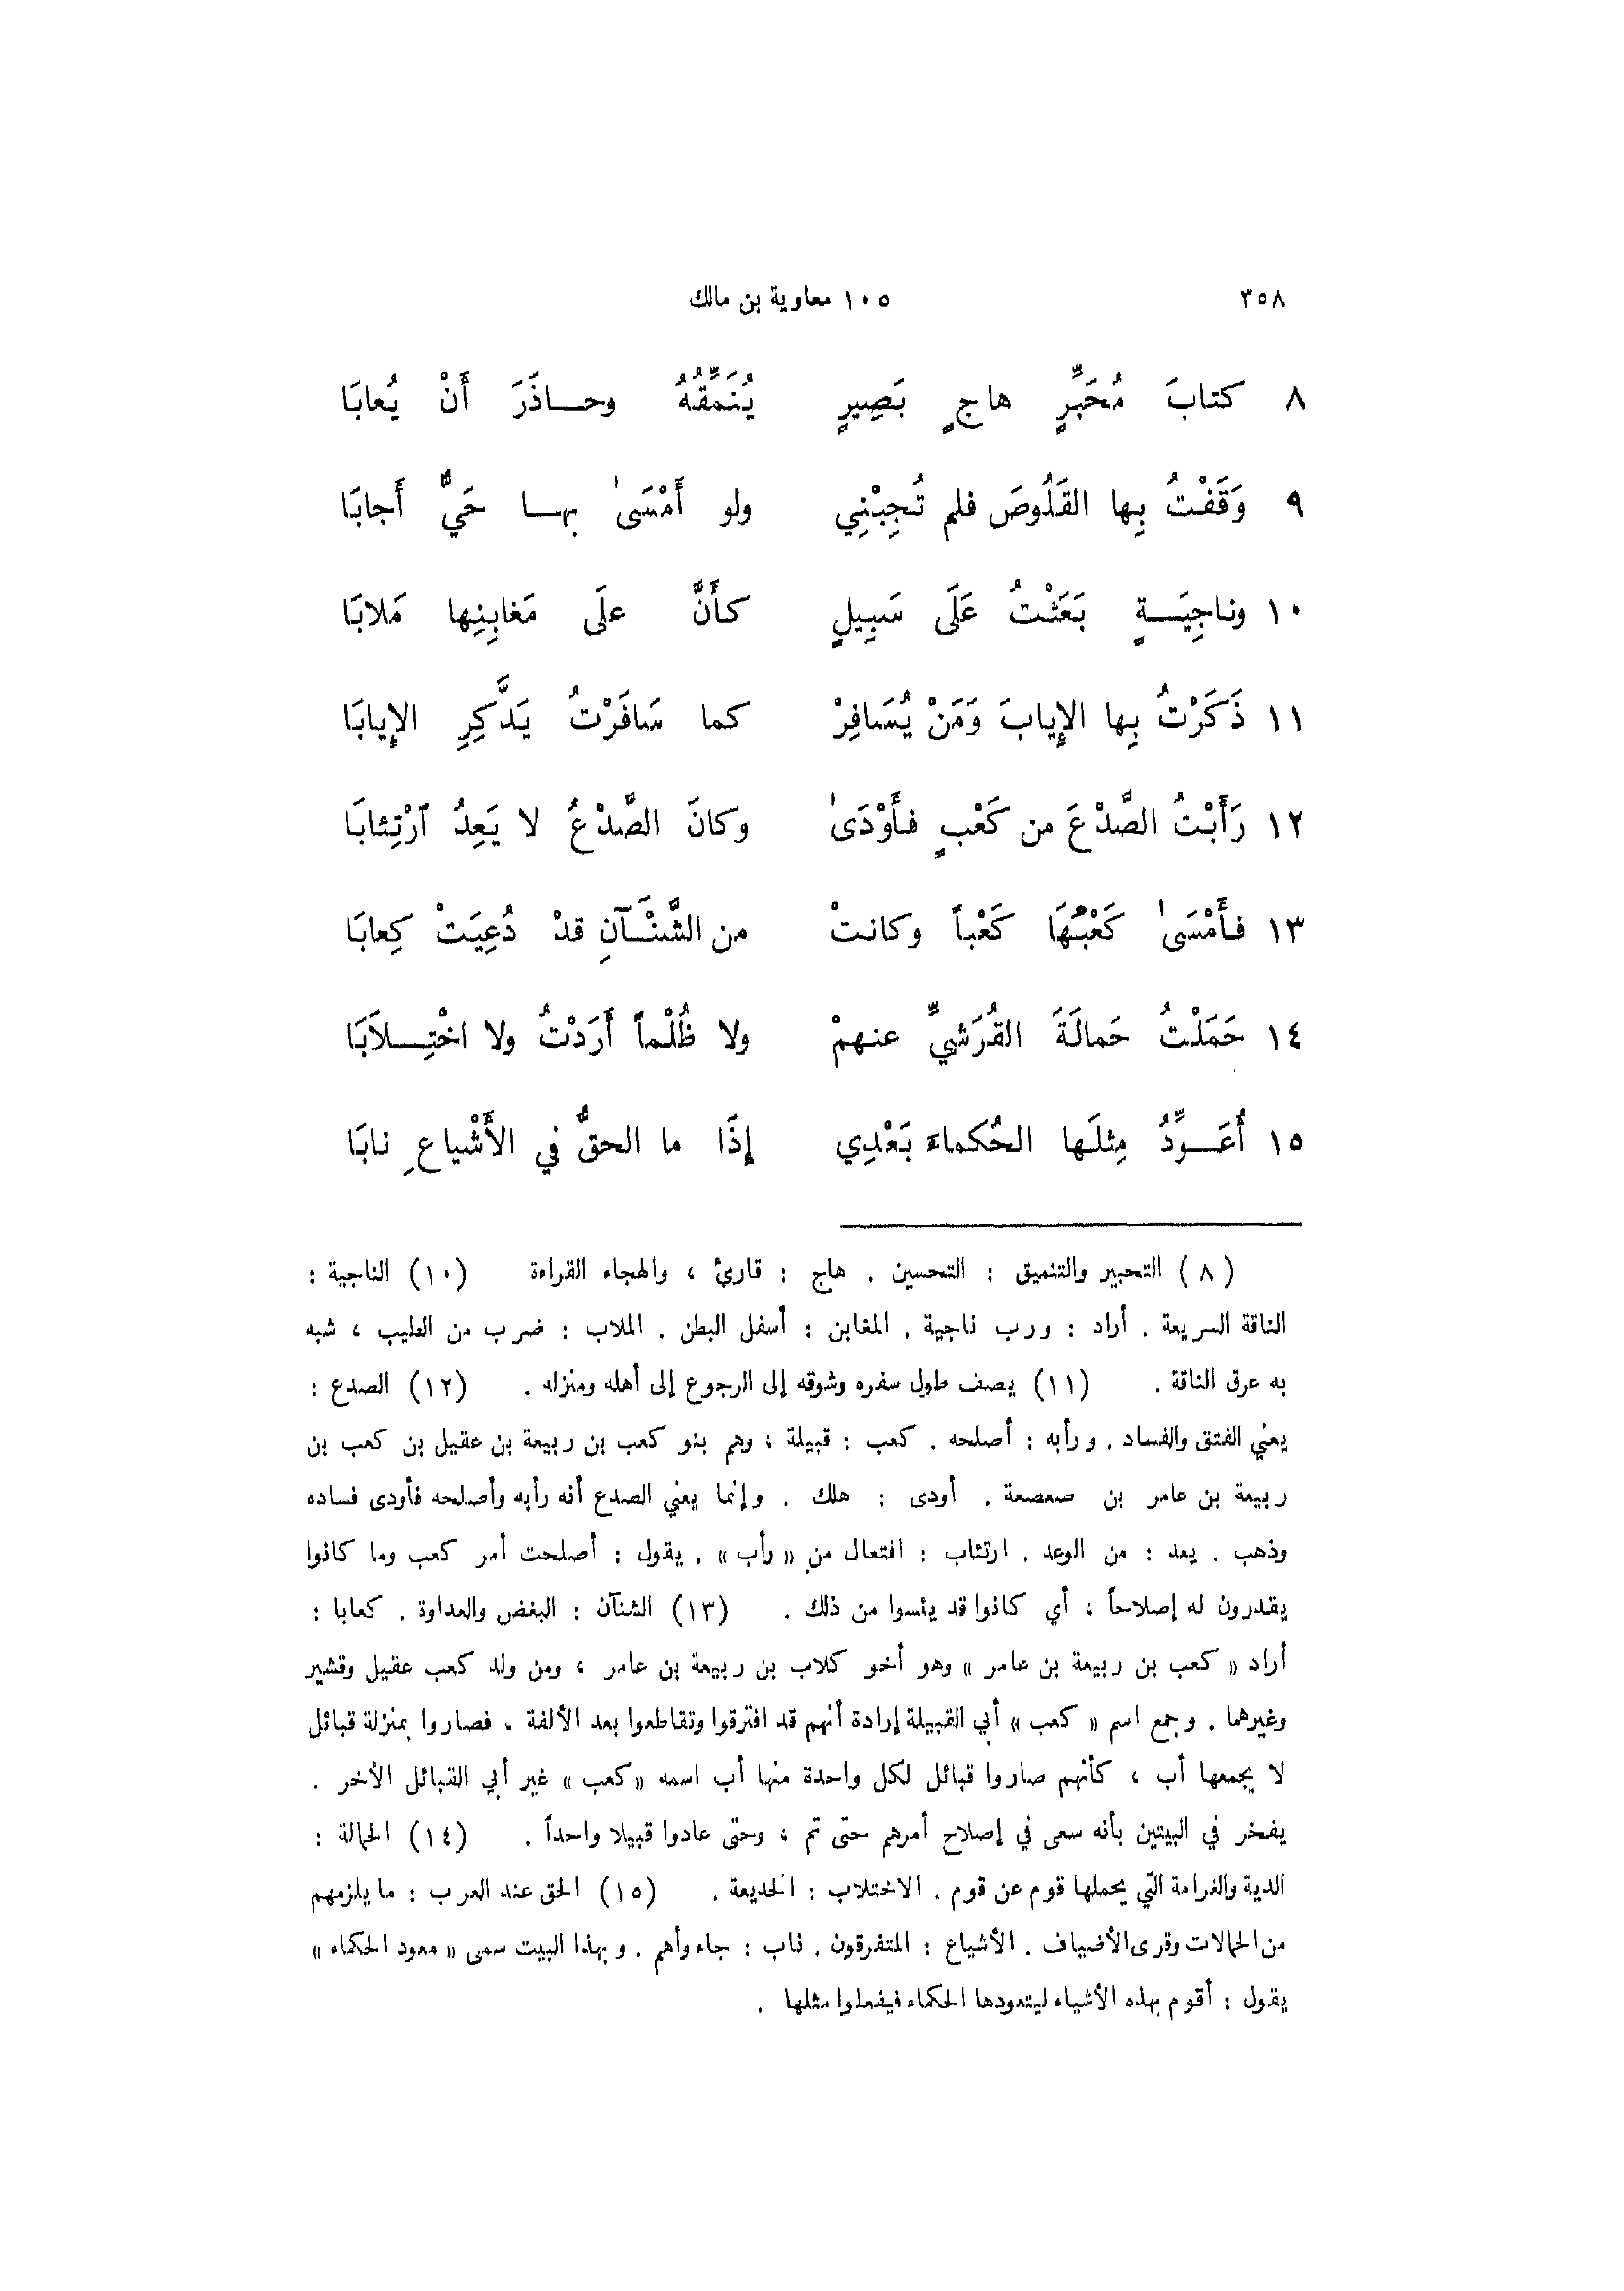 ٣٥٨ ١٠٥ معاوية بن مالك
٨ كتابَ مُحَبِّرٍ هاجٍ بَصِيرٍ يُنَمِّقُهُ وحاذَرَ أَنْ يُعابَا
٩ وَقَفْتُ بِها القَلُوصَ فلم تُجِبْنِي ولو أَمْسَىٰ بها حَيٌّ أَجابَا
١٠ وناجِيَةٍ بَعَثْتُ عَلَى سَبِيلٍ كأَنَّ علَى مَغابِنِها مَلابَا
١١ ذَكَرْتُ بِها الإِيابَ وَمَنْ يُسَافِرْ كما سَافَرْتُ يَدَّكِرِ الإِيابَا
١٢ رَأَبْتُ الصَّدْعَ من كَعْبٍ فأَوْدَىٰ وكانَ الصَّدْعُ لا يَعِدُ ٱرْتِئابَا
١٣ فأَمْسَىٰ كَعْبُهَا كَعْباً وكانتْ من الشَّنْآنِ قدْ دُعِيَتْ كِعابَا
١٤ حَمَلْتُ حَمالَةَ القُرَشيِّ عنهمْ ولا ظُلْماً أَرَدْتُ ولا اخْتِلاَبَا
١٥ أُعَوِّدُ مِثلَها الحُكماءَ بَعْدِي إِذَا ما الحقُّ في الأَشْياعِ نابَا
(٨) التحبير والتنميق : التحسين . هاج : قارئ ، والهجاء القراءة (١٠) الناجية :
الناقة السريعة . أراد : ورب ناجية . المغابن : أسفل البطن . الملاب : ضرب من الطيب ، شبه
به عرق الناقة . (١١) يصف طول سفره وشوقه إلى الرجوع إلى أهله ومنزله . (١٢) الصدع :
يعني الفتق والفساد . ورأبه : أصلحه . كعب : قبيلة ؛ وهم بنو كعب بن ربيعة بن عقيل بن كعب بن
ربيعة بن عامر بن صعصعة . أودى : هلك . وإنما يعني الصدع أنه رأبه وأصلحه فأودى فساده
وذهب . يعد : من الوعد . ارتئاب : افتعال من «رأب» . يقول : أصلحت أمر كعب وما كانوا
يقدرون له إصلاحاً ، أي كانوا قد يئسوا من ذلك . (١٣) الشنآن : البغض والعداوة . كعابا :
أراد « كعب بن ربيعة بن عامر » وهو أخو كلاب بن ربيعة بن عامر ، ومن ولد كعب عقيل وقشير
وغيرهما . وجمع اسم « كعب » أبي القبيلة إرادة أنهم قد افترقوا وتقاطعوا بعد الألفة ، فصاروا بمنزلة قبائل
لا يجمعها أب ، كأنهم صاروا قبائل لكل واحدة منها أب اسمه «كعب» غير أبي القبائل الأخر .
يفخر في البيتين بأنه سعى في إصلاح أمرهم حتى تم ، وحتى عادوا قبيلا واحداً . (١٤) الحمالة :
الدية والغرامة التي يحملها قوم عن قوم . الاختلاب : الخديعة . (١٥) الحق عند العرب : ما يلزمهم
من الحمالات وقرى الأضياف . الأشياع : المتفرقون . ناب : جاء وأهم . وبهذا البيت سمى « معود الحكماء »
يقول : أقوم بهذه الأشياء ليتعودها الحكماء فيفعلوا مثلها .